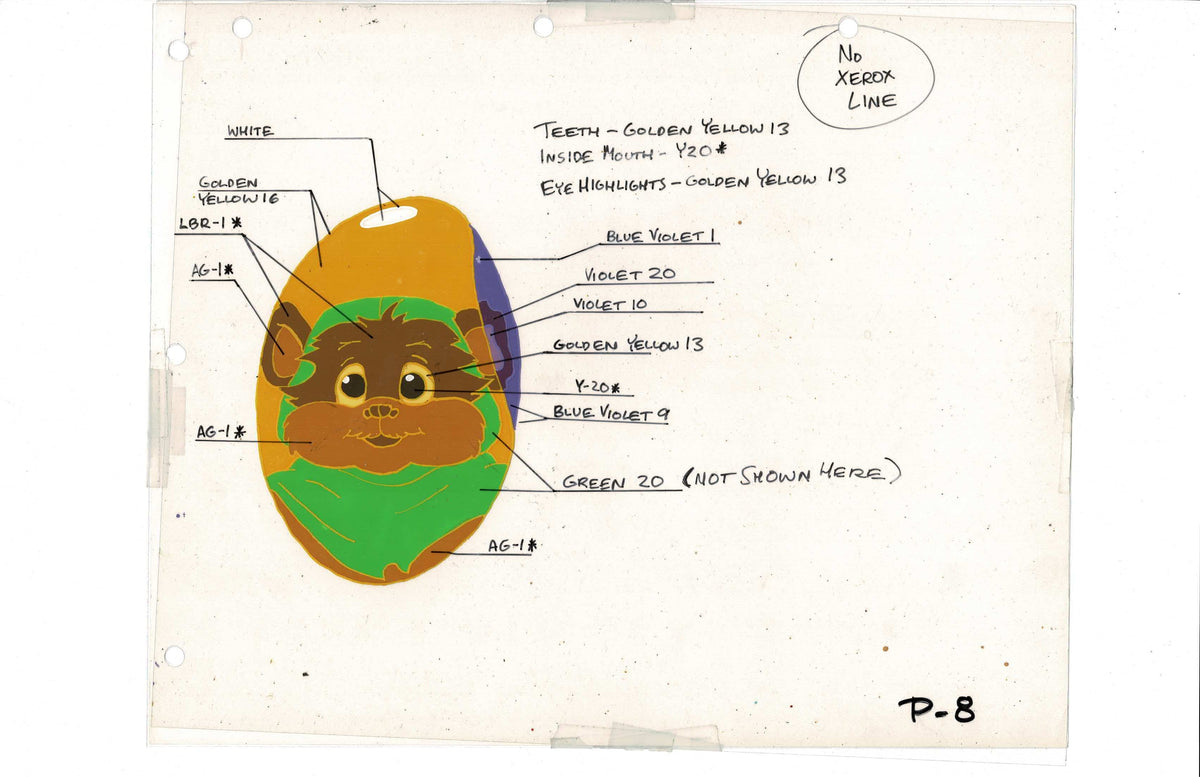 No
XEROX
LINE
TEETH - GOLDEN YELLOW 13
INSIDE MOUTH - Y20*
EYE HIGHLIGHTS - GOLDEN YELLOW 13
WHITE
GOLDEN
YELLOW 16
LBR-1*
AG-1*
BLUE VIOLET 1
VIOLET 20
VIOLET 10
GOLDEN YELLOW 13
Y-20*
BLUE VIOLET 9
AG-1*
GREEN 20 (NOT SHOWN HERE)
AG-1*
P-8